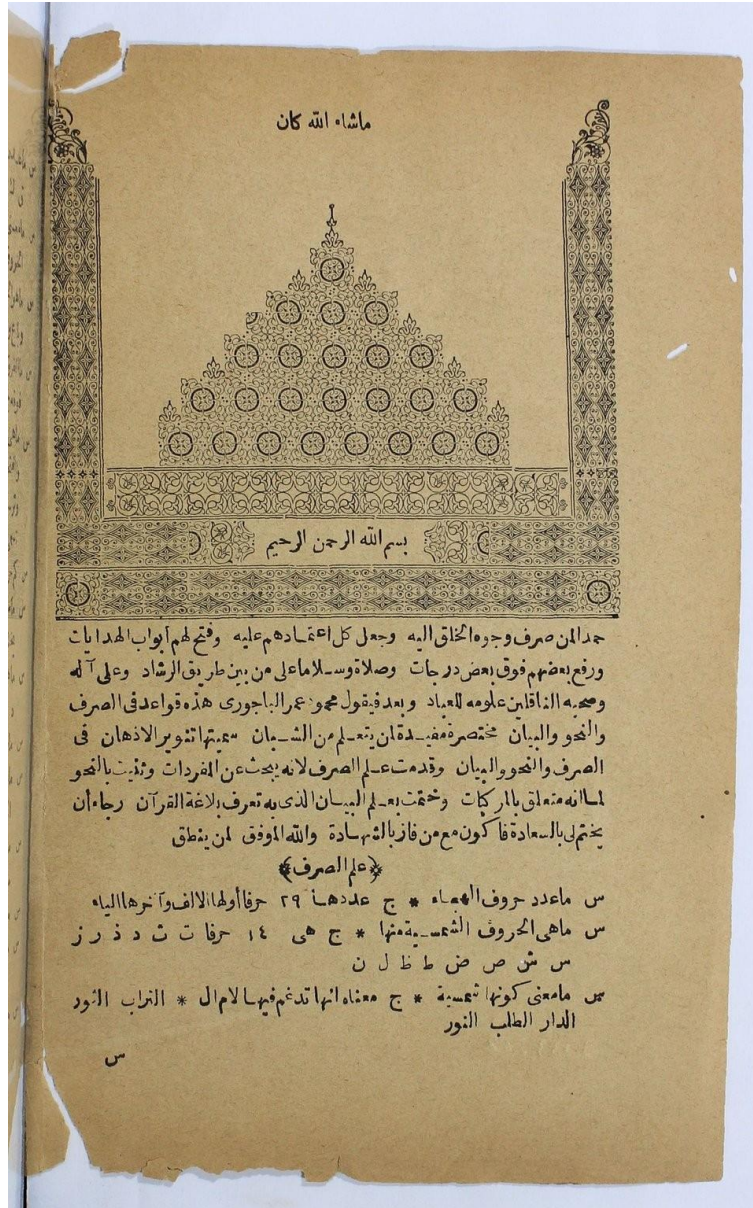 ماشاء الله كان
بسم الله الرحمن الرحيم
حمدا لمن صرف وجوه الخلق اليه وجعل كل اعتمادهم عليه وفتح لهم أبواب الهدايات
ورفع بعضهم فوق بعض درجات وصلاة وسلاما على من بين طريق الرشاد وعلى آله
وصحبه الناقلين علومه للعباد وبعد فيقول محمود عمر الباجورى هذه قواعد فى الصرف
والنحو والبيان مختصرة مفيدة لمن يتعلم من الشبان سميتها تنوير الاذهان فى
الصرف والنحو والبيان وقدمت علم الصرف لانه يبحث عن المفردات وثنيت بالنحو
لما انه متعلق بالمركبات وختمت بعلم البيان الذى به تعرف بلاغة القرآن رجاء أن
يختم لى بالسعادة فاكون مع من فاز بالشهادة والله الموفق لمن ينطق
﴿علم الصرف﴾
س ماعدد حروف الهجاء * ج عددها ٢٩ حرفا أولها الالف وآخرها الياء
س ماهى الحروف الشمسية منها * ج هى ١٤ حرفا ت ث د ذ ر ز
س ش ص ض ط ظ ل ن
س مامعنى كونها شمسية * ج معناه انها تدغم فيها لام ال * التراب الثور
الدار الطلب النور
س